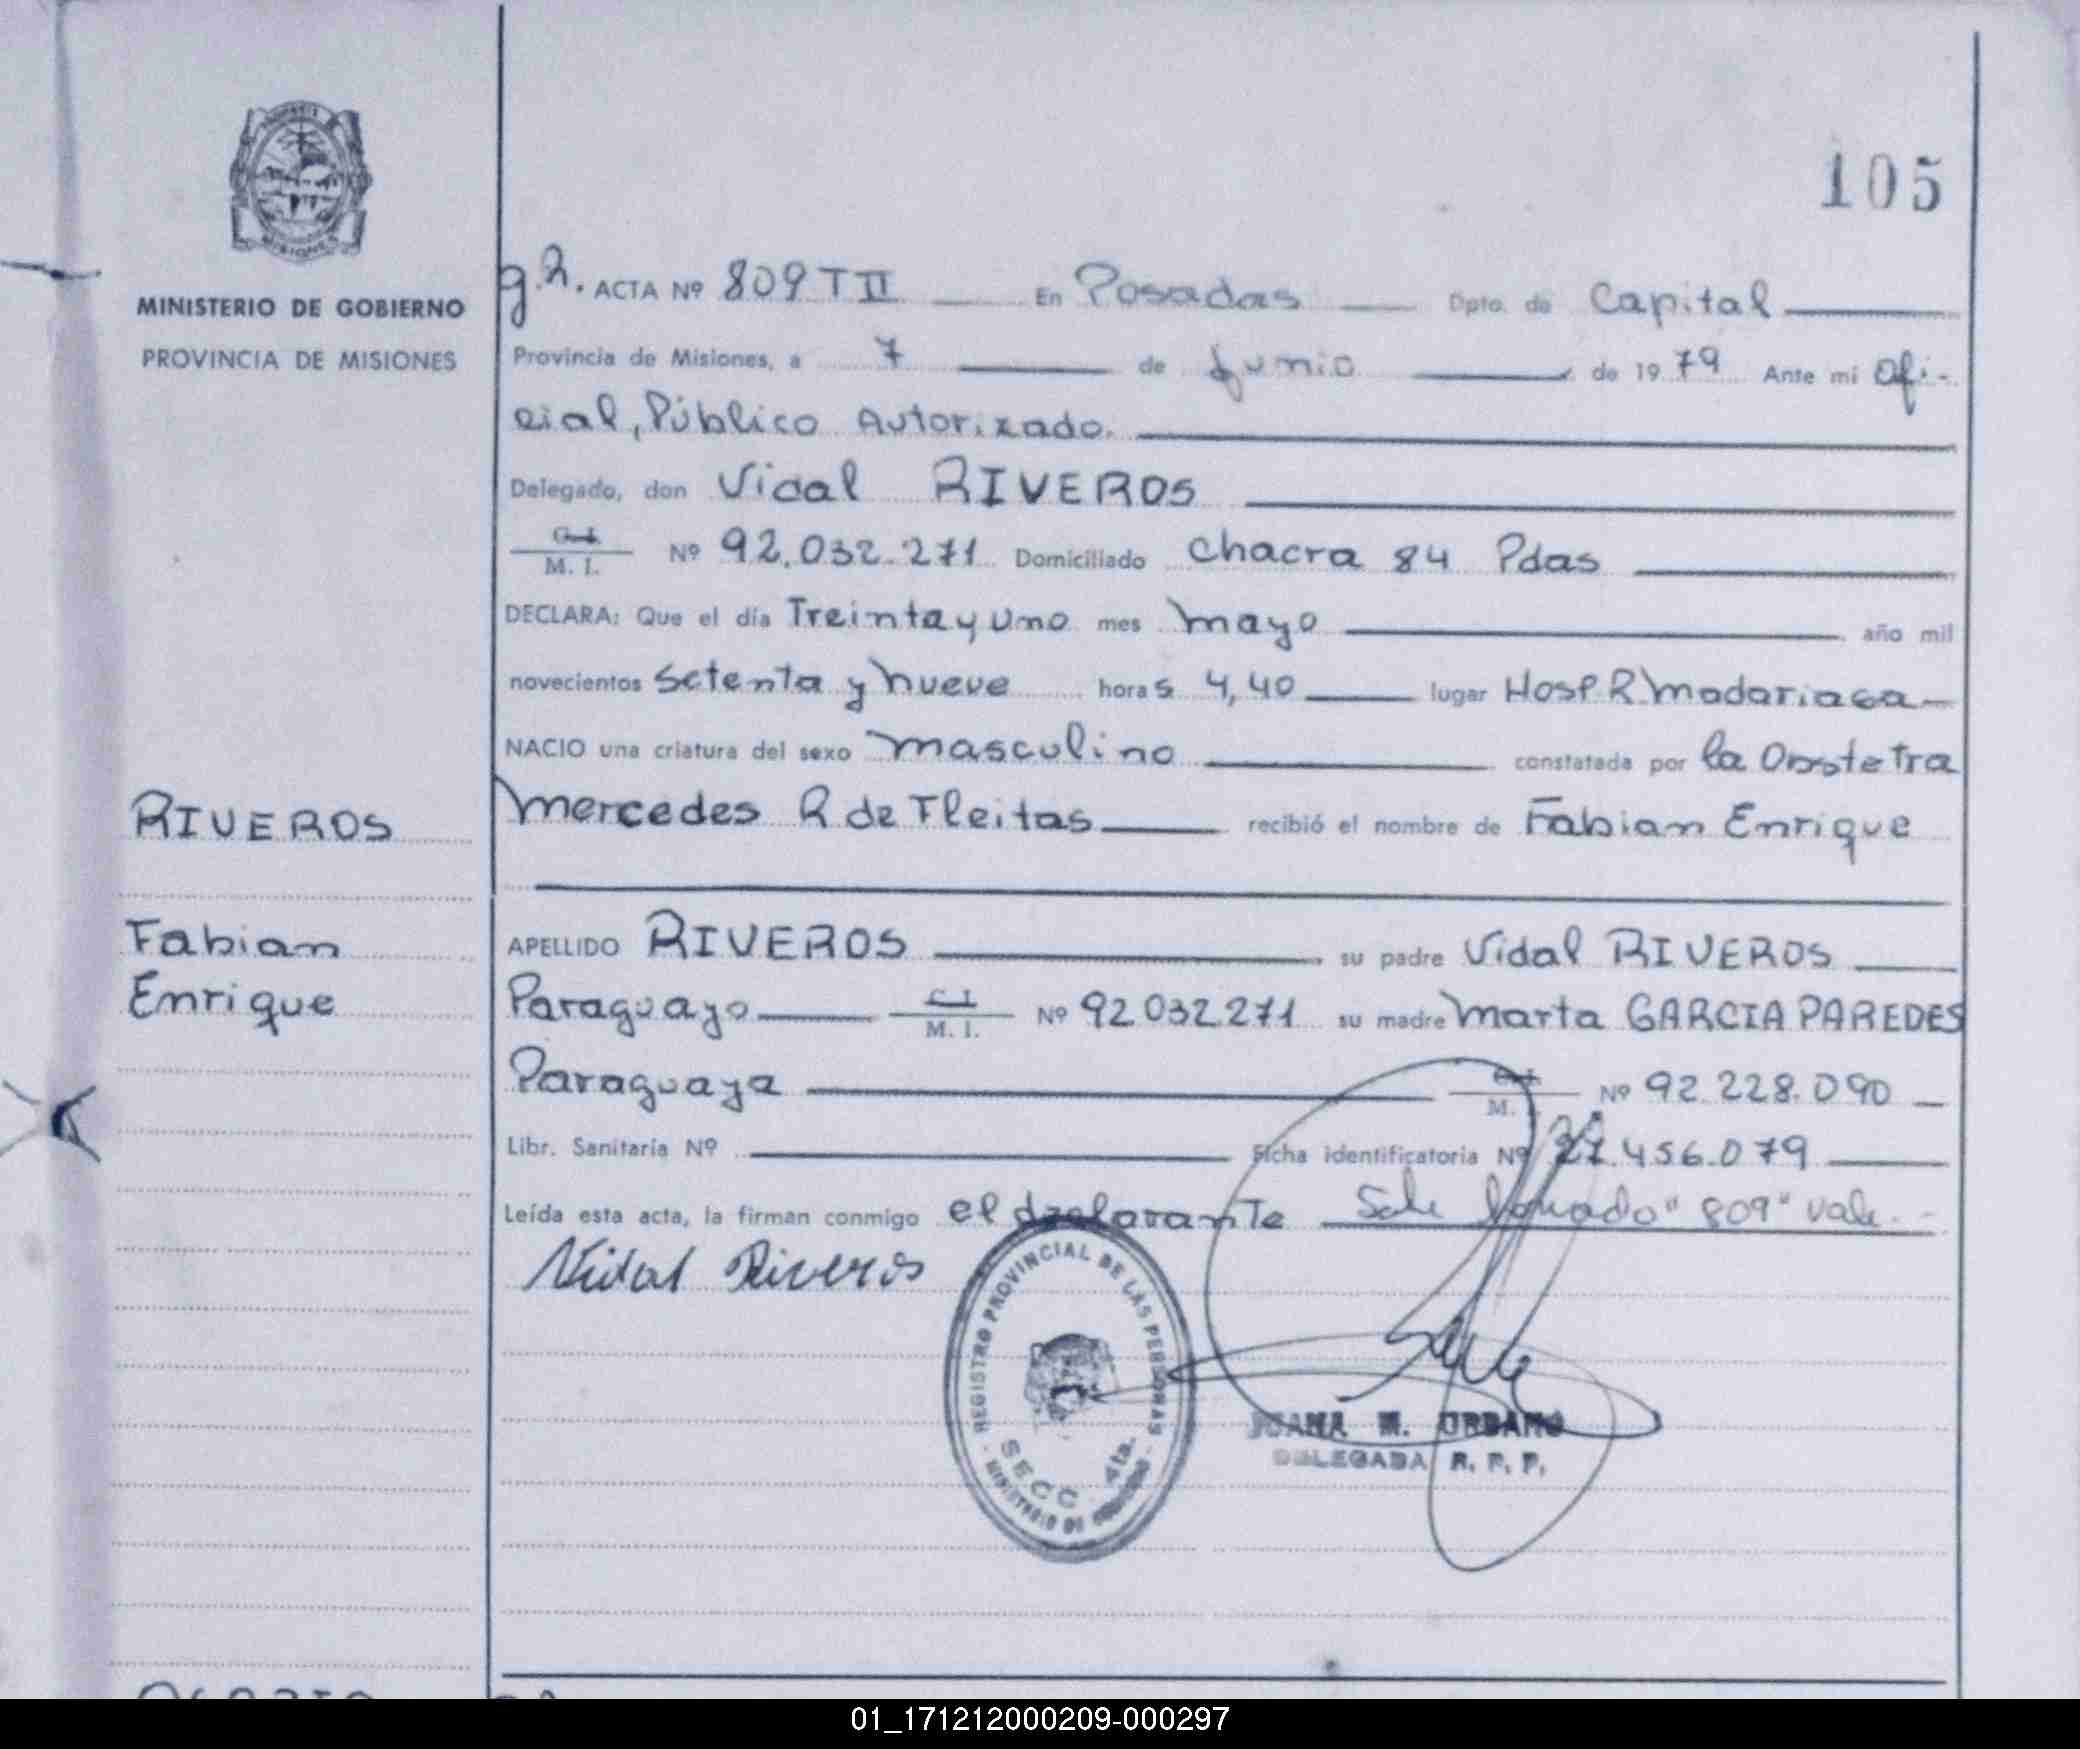 105
MINISTERIO DE GOBIERNO
PROVINCIA DE MISIONES
g.h. ACTA Nº 809 T II En Posadas Dpto. de Capital
Provincia de Misiones, a 7 de Junio de 1979 Ante mi Ofi-
cial, Público Autorizado.
Delegado, don Vidal RIVEROS
C. I.
M. I. Nº 92.032.271 Domiciliado Chacra 84 Pdas
DECLARA: Que el día Treinta y Uno mes Mayo año mil
novecientos Setenta y Nueve horas 4,40 lugar Hosp R. Madariaga
NACIO una criatura del sexo Masculino constatada por la Obstetra
Mercedes R de Fleitas recibió el nombre de Fabian Enrique
RIVEROS
Fabian
Enrique
APELLIDO RIVEROS su padre Vidal RIVEROS
Paraguayo C. I.
M. I. Nº 92032271 su madre Marta GARCIA PAREDES
Paraguaya C. I.
M. Nº 92.228.090
Libr. Sanitaria Nº Ficha identificatoria Nº 27.456.079
Leída esta acta, la firman conmigo el declarante "809" vale.-
Vidal Riveros
REGISTRO PROVINCIAL DE LAS PERSONAS
SECC. 4ta.
MINISTERIO DE GOBIERNO
JUANA M. URBANO
DELEGADA R. P. P.
01_171212000209-000297